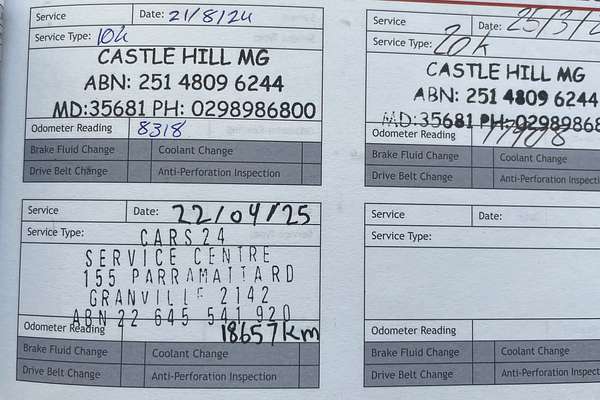 Service Date: 21/8/24
Service Type: 10k
CASTLE HILL MG
ABN: 251 4809 6244
MD:35681 PH: 0298986800
Odometer Reading 8318
Brake Fluid Change Coolant Change
Drive Belt Change Anti-Perforation Inspection
Service Date: 25/3/2
Service Type: 20k
CASTLE HILL MG
ABN: 251 4809 6244
MD:35681 PH:0298986
Odometer Reading
Brake Fluid Change Coolant Change
Drive Belt Change Anti-Perforation Inspect
Service Date: 22/04/25
Service Type: CARS24
SERVICE CENTRE
155 PARRAMATTA RD
GRANVILLE 2142
ABN 22 645 541 920
Odometer Reading 18657km
Brake Fluid Change Coolant Change
Drive Belt Change Anti-Perforation Inspection
Service Date:
Service Type:
Odometer Reading
Brake Fluid Change Coolant Change
Drive Belt Change Anti-Perforation Inspect